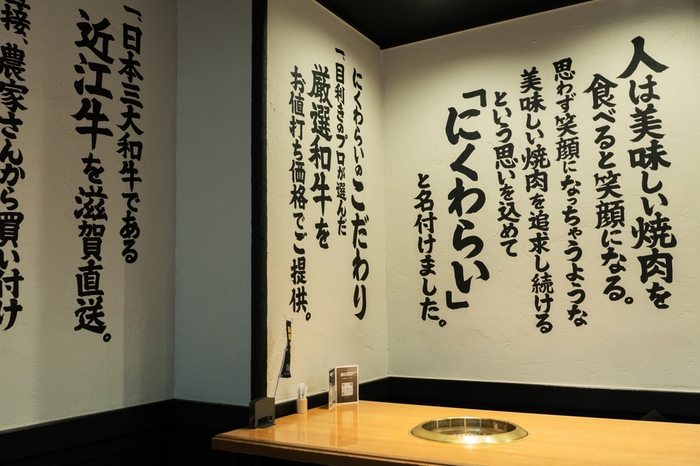 人は美味しい焼肉を
食べると笑顔になる。
思わず笑顔になっちゃうような
美味しい焼肉を追求し続ける
という思いを込めて
「にくわらい」
と名付けました。
にくわらいのこだわり
一、目利きのプロが選んだ
厳選和牛を
お値打ち価格でご提供。
一、日本三大和牛である
近江牛を滋賀直送。
直接、農家さんから買い付け